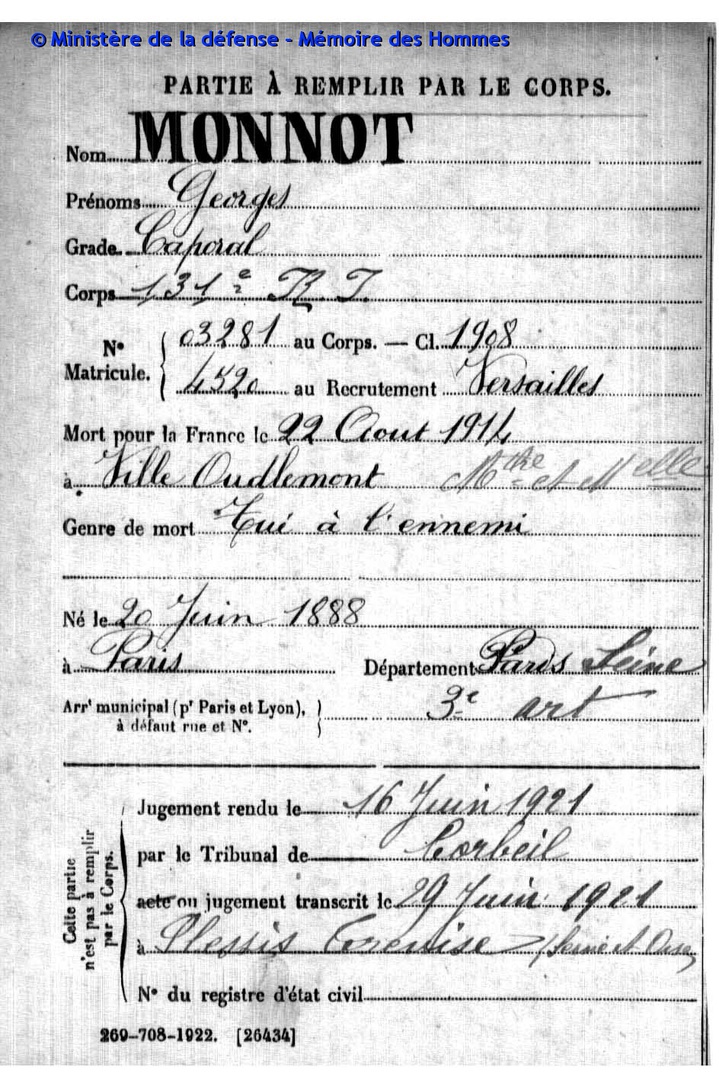 © Ministère de la défense - Mémoire des Hommes
PARTIE À REMPLIR PAR LE CORPS.
Nom MONNOT
Prénoms Georges
Grade Caporal
Corps 131e R I
No Matricule. 03281 au Corps. — Cl. 1908
4520 au Recrutement Versailles
Mort pour la France le 22 Aout 1914
à Ville Oudlemont Mthe et Melle
Genre de mort Tué à l'ennemi
Né le 20 Juin 1888
à Paris Département Paris Seine
Arrt municipal (pr Paris et Lyon), 3e art
à défaut rue et No.
Cette partie n'est pas à remplir par le Corps.
Jugement rendu le 16 Juin 1921
par le Tribunal de Corbeil
acte ou jugement transcrit le 29 Juin 1921
à Plessis Chenuise (Seine et Oise)
No du registre d'état civil
269-708-1922. [26434]